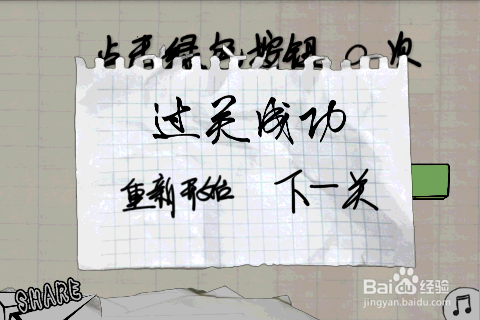 点击绿色按钮 0 次
过关成功
重新开始 下一关
SHARE
Baidu 经验
jingyan.baidu.com